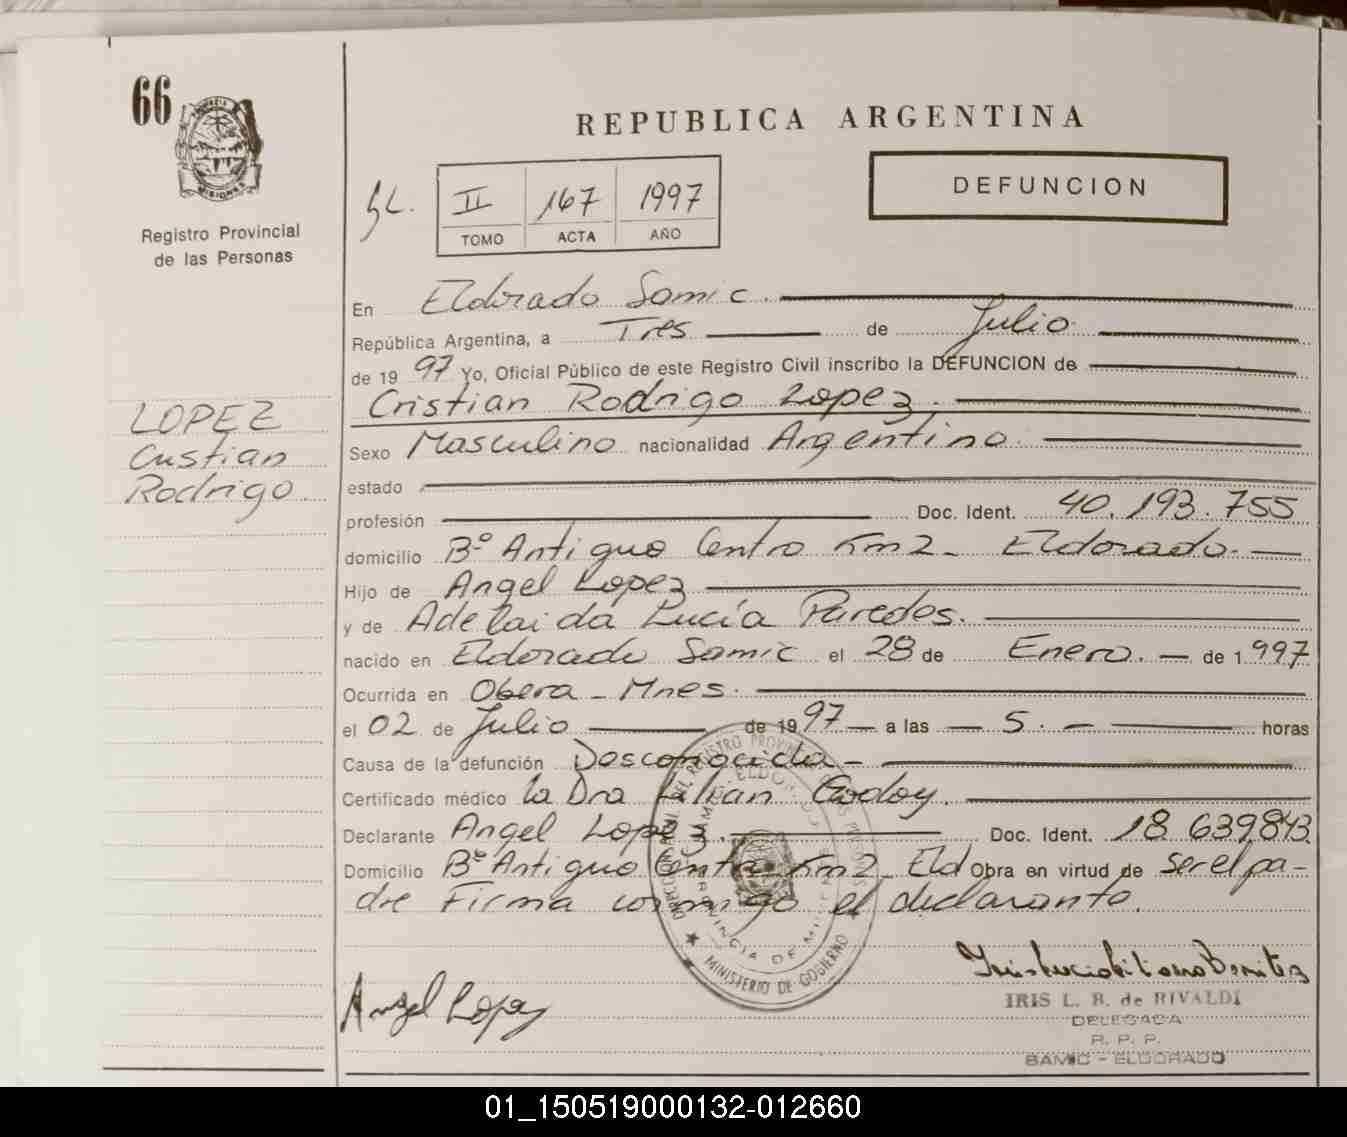 66
MISIONES
Registro Provincial
de las Personas
REPUBLICA ARGENTINA
II 167 1997
TOMO ACTA AÑO
DEFUNCION
En Eldorado Samic.
República Argentina, a Tres de Julio
de 1997 Yo, Oficial Público de este Registro Civil inscribo la DEFUNCION de
Cristian Rodrigo Lopez.
LOPEZ
Cristian
Rodrigo
Sexo Masculino nacionalidad Argentino.
estado
profesión Doc. Ident. 40.193.755
domicilio Bº Antiguo Centro Km2 - Eldorado.
Hijo de Angel Lopez
y de Adelaida Lucía Paredes.
nacido en Eldorado Samic el 28 de Enero. - de 1997
Ocurrida en Obera - Mnes.
el 02 de Julio de 1997 a las - 5. - horas
Causa de la defunción Desconocida -
Certificado médico la Dra Lilian Godoy.
Declarante Angel Lopez. Doc. Ident. 18.639843
Domicilio Bº Antiguo Centro Km2 - Eld Obra en virtud de ser el pa-
dre Firma conmigo el declarante.
MINISTERIO DE GOBIERNO
PROVINCIA DE MISIONES
Angel Lopez
IRIS L. B. de RIVALDI
DELEGADA
R. P. P.
SAMIC - ELDORADO
01_150519000132-012660